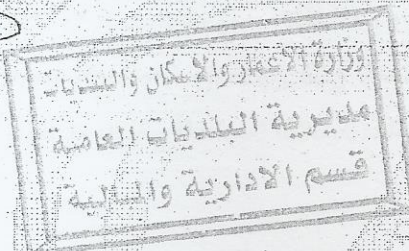 وزارة الاعمار والاسكان والبلديات
مديرية البلديات العامة
قسم الادارية والمالية